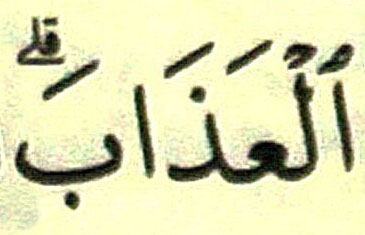 ٱلْعَذَابَ ۗ